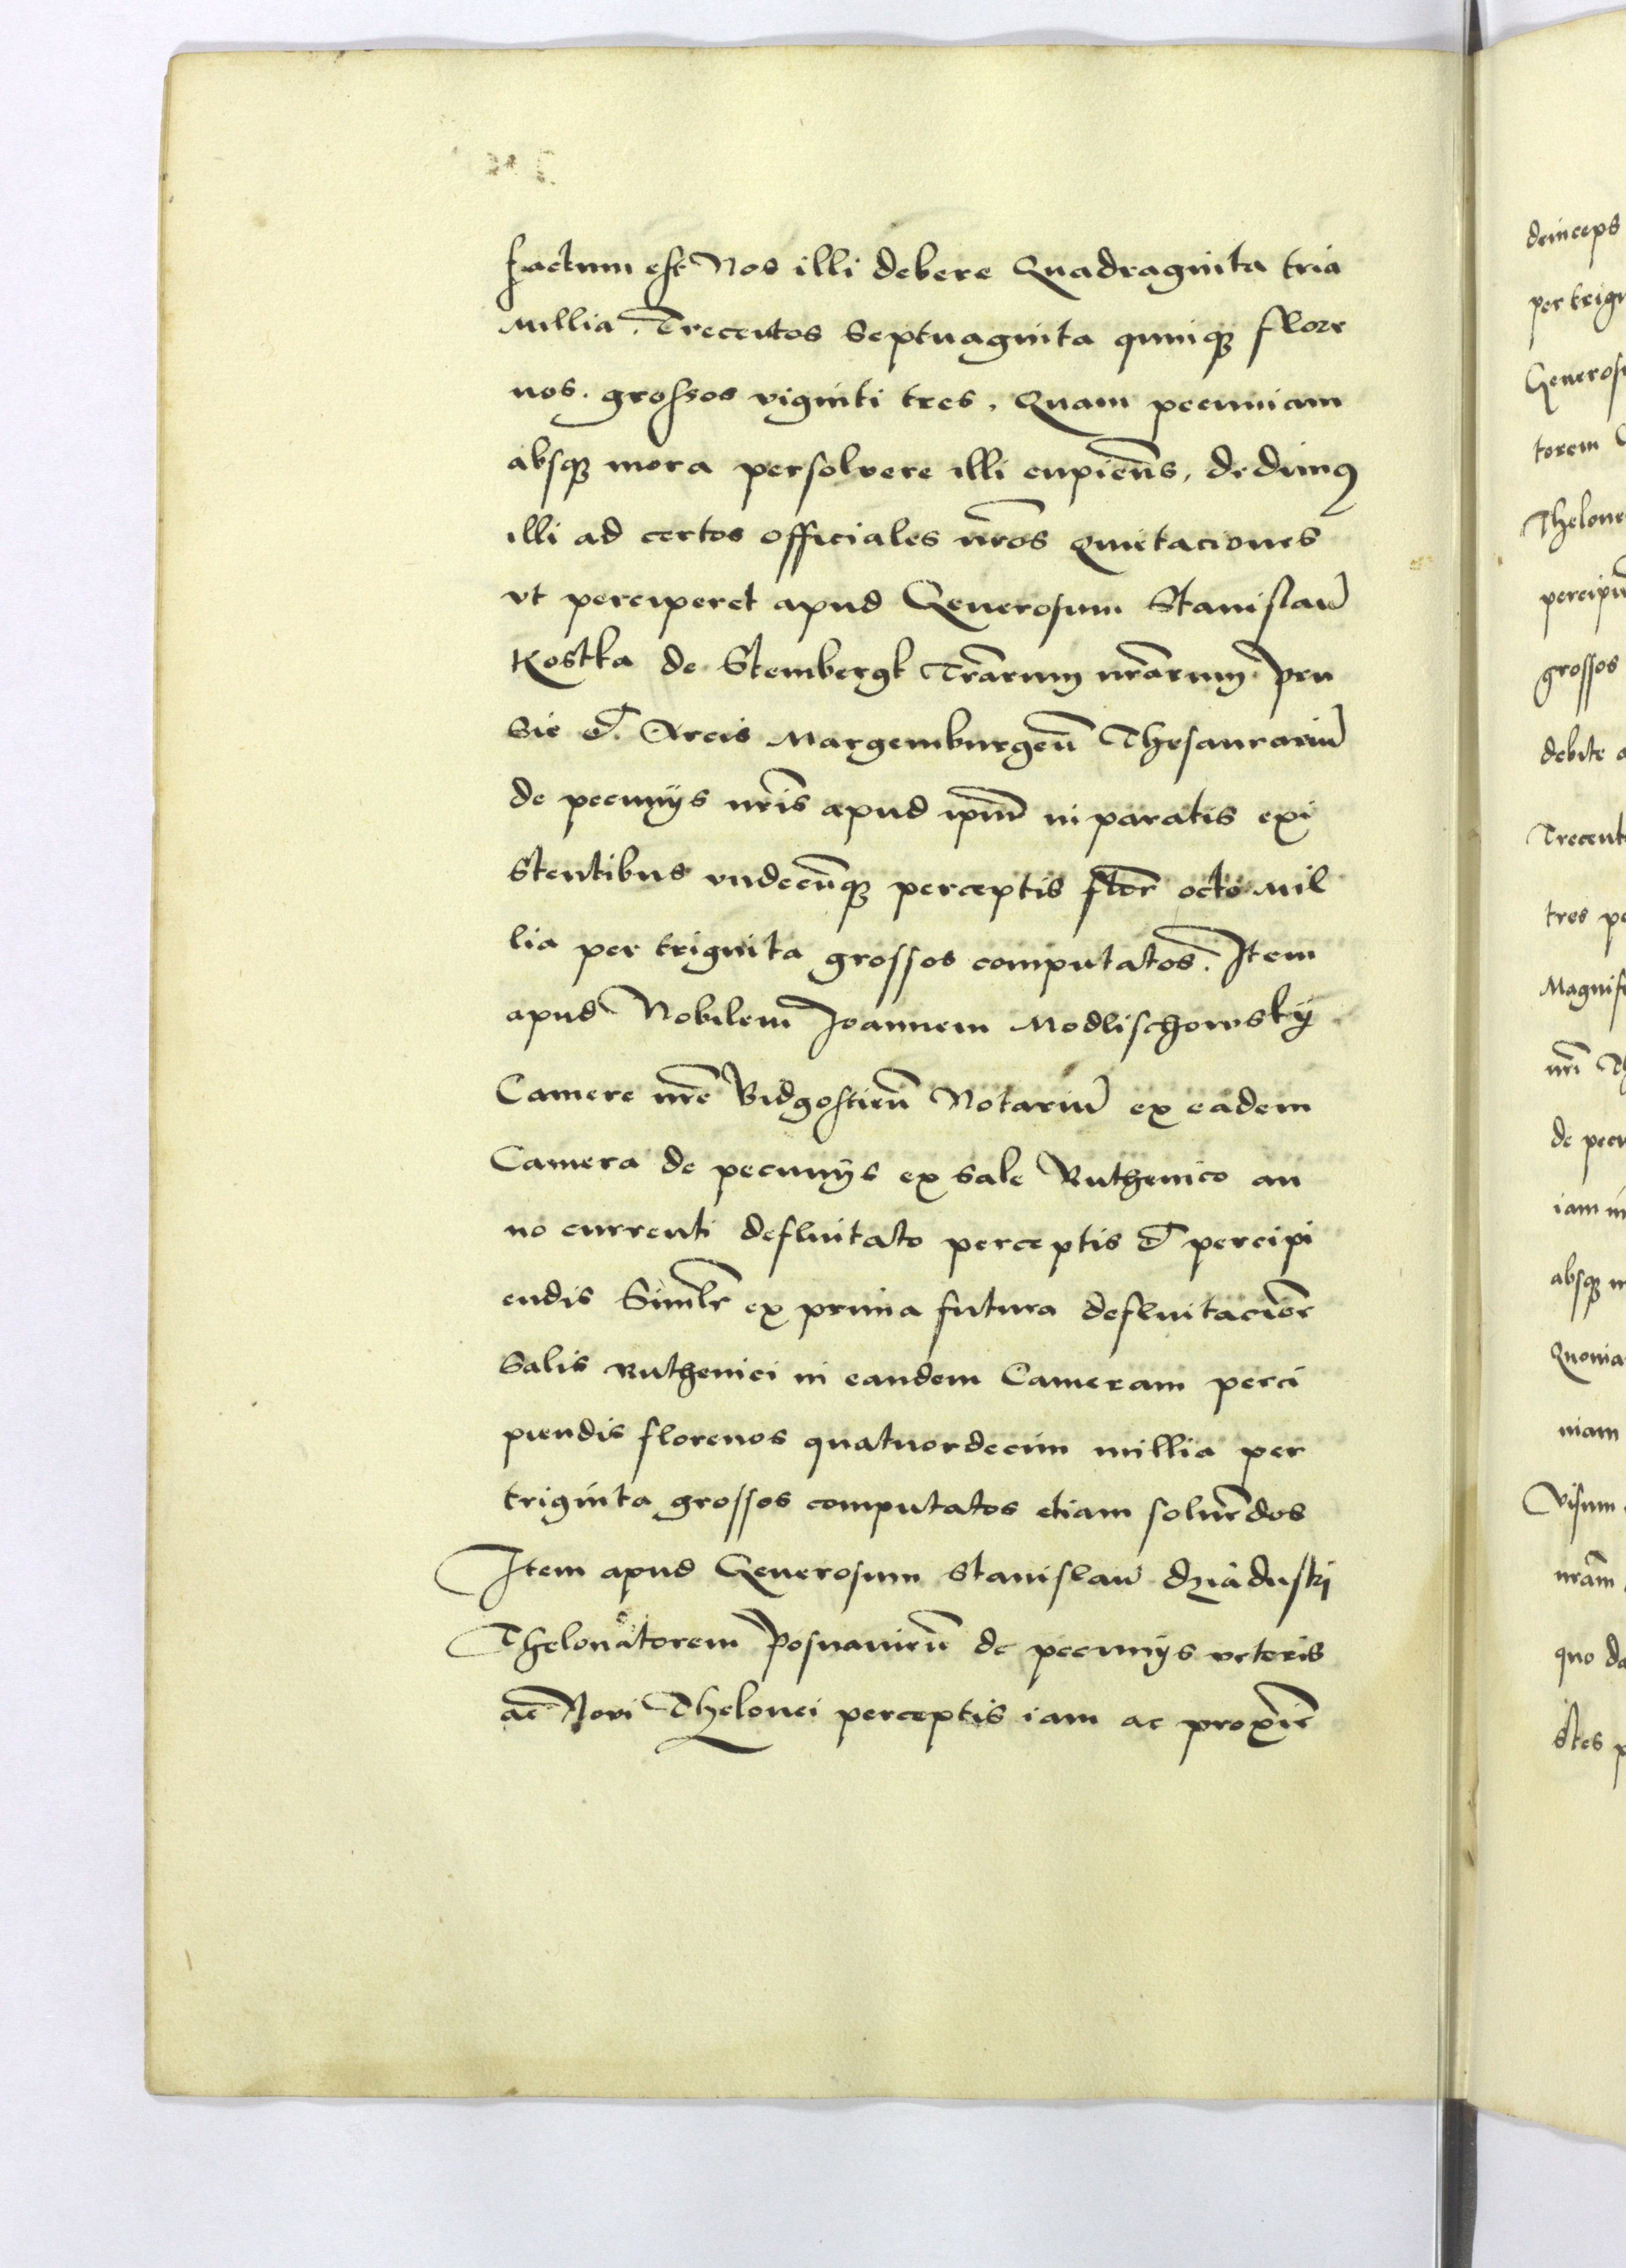 factum est Nos illi debere Quadraginta tria
Millia. Trecentos Septuaginta quinqꝫ flore
nos. grossos viginti tres. Quam pecuniam
absqꝫ mora persolvere illi cupien̄s, dedimꝯ
illi ad certos officiales nr̄os quietaciones
vt perciperet apud Generosum Stanislaū
Kostka de Stembergk Trārum nr̄arum Pru
sie et Arcis Margemburgen̄ Thesaurariū
de pecunijs nr̄is apud ipm̄ in paratis exi
stentibus vndecūqꝫ perceptis flor̄ octo Mil
lia per triginta grossos computatos. Item
apud Nobilem Joannem Modlischowskÿ
Camere nr̄e Bidgostien̄ Notariū ex eadem
Camera de pecunijs ex sale Ruthenico an
no currenti defluitato perceptis et percipi
endis Simlr̄ ex prima futura defluitacōne
Salis Ruthenici in eandem Cameram perci
piendis florenos quatuordecim millia per
triginta grossos computatos etiam soluēdos
Item apud Generosum Stanislaū dziaduski
Thelonatorem Posnanien̄ de pecunijs veteris
ac Novi Thelonei perceptis iam ac proxīe
deinceps
per trigi
Generosu
torem
Thelone
percipi
grossos
debite
Trecent
tres pe
Magnifi
nr̄i Th
de pecu
iam in
absqꝫ m
Quonia
niam
Visum
nr̄am
quo da